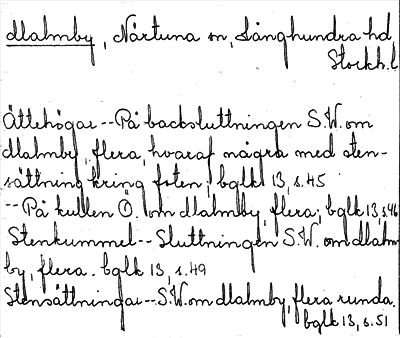 Malmby, Närtuna sn, Långhundra hd,
Stockh.l
Ättehögar -- På backsluttningen S.W. om
Malmby, flera, hvaraf några med sten-
sättning kring foten; bglk 13, s.45
-- På kullen Ö. om Malmby, flera; bglk 13, s.46
Stenkummel -- Sluttningen S.W. om Malm-
by, flera. bglk 13, s.49
Stensättningar -- S.W. om Malmby, flera runda.
bglk 13, s.51